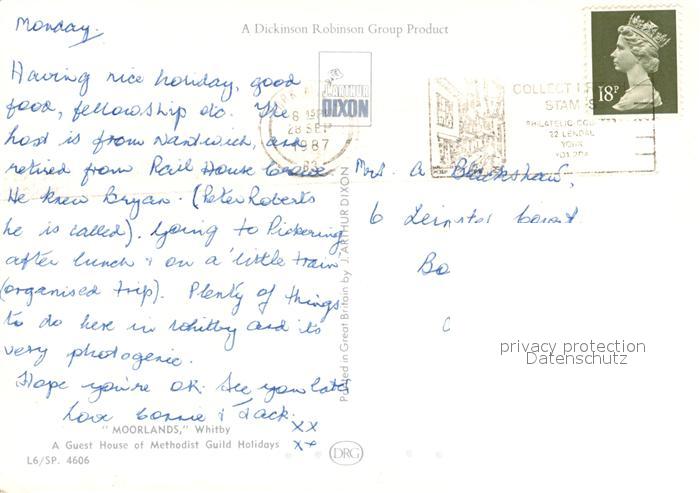 Monday.
A Dickinson Robinson Group Product
Having nice holiday, good
food, fellowship etc. The
host is from Nantwich, and
retired from Rail House
He knew Bryan. (Peter Roberts
he is called). Going to Pickering
after lunch & on a little train
(organised trip). Plenty of things
to do here in Whitby and its
very photogenic.
Hope you're OK. See you later
Love Connie & Jack.
xx
xx
"MOORLANDS," Whitby
A Guest House of Methodist Guild Holidays
L6/SP. 4606
J. ARTHUR
DIXON
Printed in Great Britain by J. ARTHUR DIXON
DRG
8
28 SEP
1987
COLLECT
STAMPS
PHILATELIC
22 LENDAL
YORK
18P
Mrs. A Blackshaw,
6 Leinster Court
Bo
C
privacy protection
Datenschutz